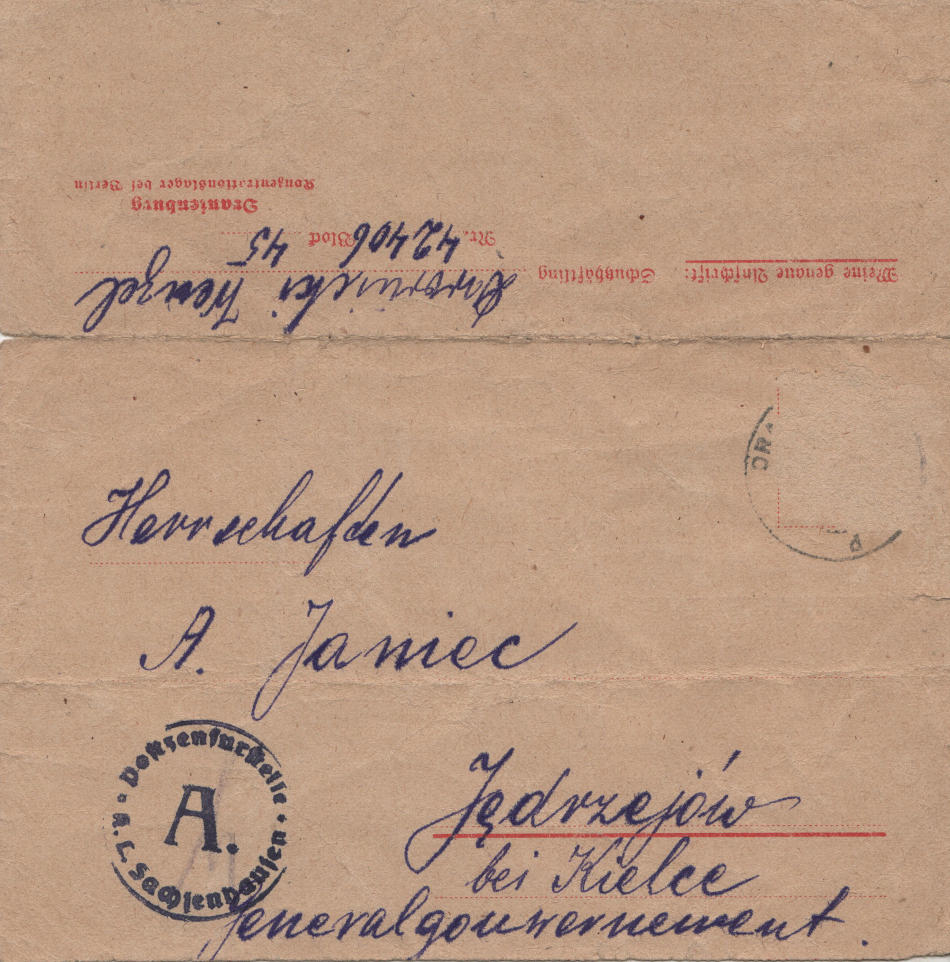 Meine genaue Anschrift: Schutzhäftling Wenzel
Nr. 42406 Block 45
Oranienburg
Konzentrationslager bei Berlin
ORA
Herrschaften
A. Janiec
Postzensurstelle
A.
K. L. Sachsenhausen
Jędrzejów
bei Kielce
Generalgouvernement.